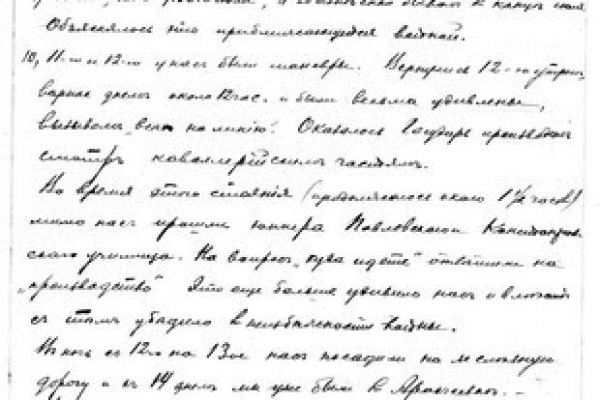 Объяснялось это приближающейся войной.
10, 11-го и 12-го у нас были маневры. Вернулись 12-го утром,
вернее днем около 12 час. и были весьма удивлены,
вызовом "всех на линию". Оказалось Государь производит
смотр кавалерийским частям.
Во время этого стояния (продолжалось около 1½ часов)
мимо нас прошли юнкера Павловского
ского училища. На вопрос "куда идете" ответили на
"производство" Это еще больше удивило нас и
с тем убедило в неизбежности войны.
В ночь с 12го на 13ое нас посадили на железную
дорогу и в 14 днем мы уже были в